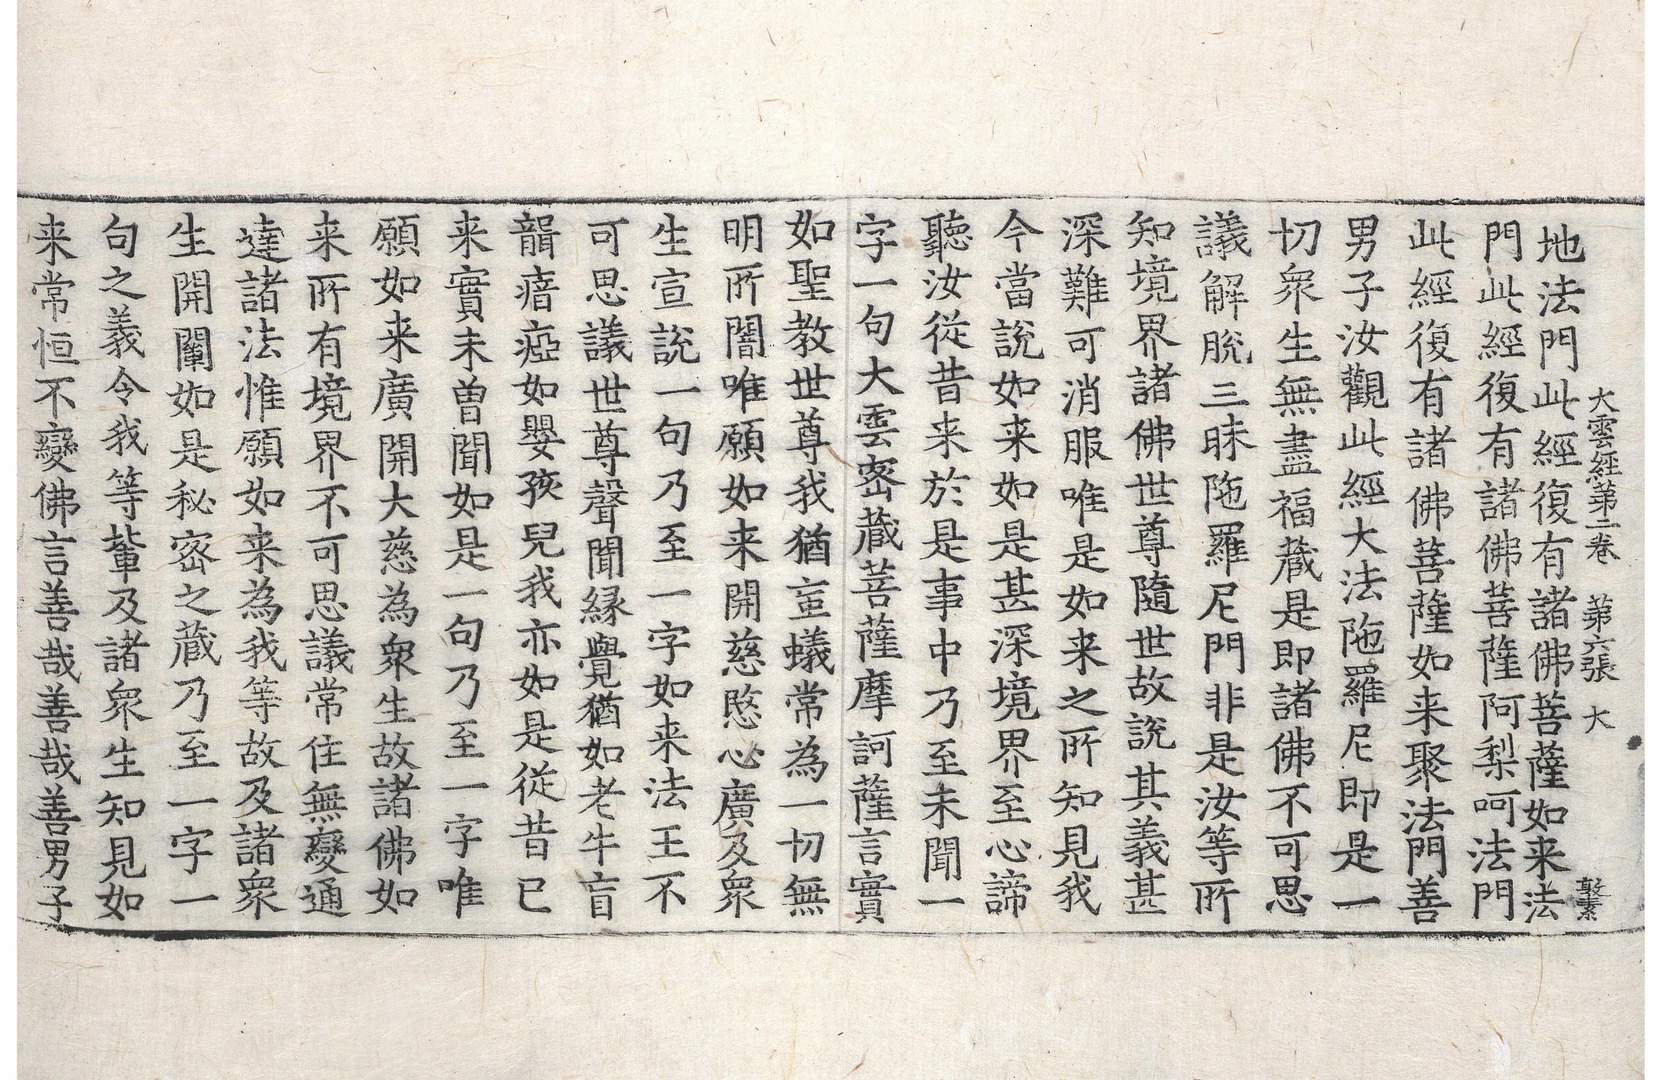 大雲經第二卷　第六張　大
地法門此經復有諸佛菩薩如来法
門此經復有諸佛菩薩阿梨呵法門
此經復有諸佛菩薩如来聚法門善
男子汝觀此經大法陁羅尼即是一
切衆生無盡福蔵是即諸佛不可思
議解脫三昧陁羅尼門非是汝等所
知境界諸佛世尊隨世故說其義甚
深難可消服唯是如来之所知見我
今當說如来如是甚深境界至心諦
聽汝従昔来於是事中乃至未聞一
字一句大雲密蔵菩薩摩訶薩言實
如聖教世尊我猶盲蟻常為一切無
明所闇唯願如来開慈愍心廣及衆
生宣說一句乃至一字如来法王不
可思議世尊聲聞縁覺猶如老牛盲
聾瘖瘂如嬰孩兒我亦如是従昔已
来實未曽聞如是一句乃至一字唯
願如来廣開大慈為衆生故諸佛如
来所有境界不可思議常住無變通
達諸法惟願如来為我等故及諸衆
生開闡如是秘密之蔵乃至一字一
句之義令我等軰及諸衆生知見如
来常恒不變佛言善哉善哉善男子